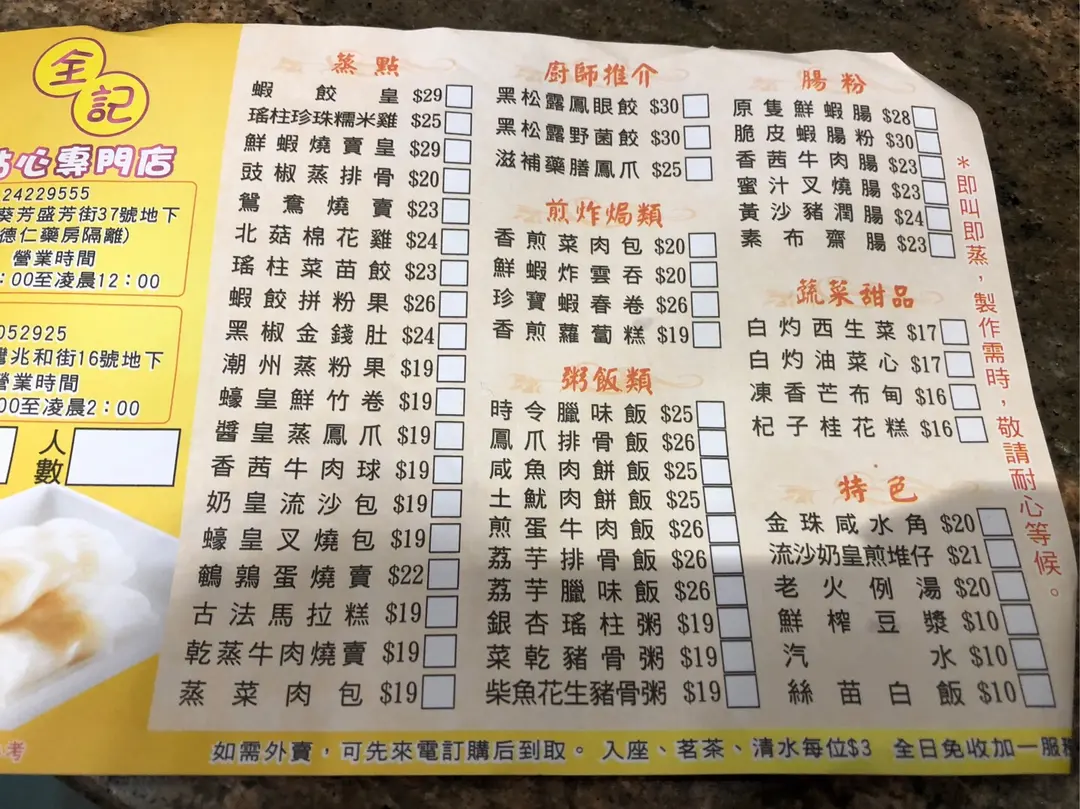 全記
點心專門店
24229555
葵芳盛芳街37號地下
德仁藥房隔離)
營業時間
:00至凌晨12:00
052925
灣兆和街16號地下
營業時間
00至凌晨2:00
人數
蒸點
蝦餃皇 $29
瑤柱珍珠糯米雞 $25
鮮蝦燒賣皇 $29
豉椒蒸排骨 $20
鴛鴦燒賣 $23
北菇棉花雞 $24
瑤柱菜苗餃 $23
蝦餃拼粉果 $26
黑椒金錢肚 $24
潮州蒸粉果 $19
蠔皇鮮竹卷 $19
醬皇蒸鳳爪 $19
香茜牛肉球 $19
奶皇流沙包 $19
蠔皇叉燒包 $19
鵪鶉蛋燒賣 $22
古法馬拉糕 $19
乾蒸牛肉燒賣 $19
蒸菜肉包 $19
廚師推介
黑松露鳳眼餃 $30
黑松露野菌餃 $30
滋補藥膳鳳爪 $25
煎炸焗類
香煎菜肉包 $20
鮮蝦炸雲吞 $20
珍寶蝦春卷 $26
香煎蘿蔔糕 $19
粥飯類
時令臘味飯 $25
鳳爪排骨飯 $26
咸魚肉餅飯 $25
土魷肉餅飯 $25
煎蛋牛肉飯 $26
荔芋排骨飯 $26
荔芋臘味飯 $26
銀杏瑤柱粥 $19
菜乾豬骨粥 $19
柴魚花生豬骨粥 $19
腸粉
原隻鮮蝦腸 $28
脆皮蝦腸粉 $30
香茜牛肉腸 $23
蜜汁叉燒腸 $23
黃沙豬潤腸 $24
素布齋腸 $23
蔬菜甜品
白灼西生菜 $17
白灼油菜心 $17
凍香芒布甸 $16
杞子桂花糕 $16
特色
金珠咸水角 $20
流沙奶皇煎堆仔 $21
老火例湯 $20
鮮榨豆漿 $10
汽水 $10
絲苗白飯 $10
*即叫即蒸,製作需時,敬請耐心等候。
考
如需外賣,可先來電訂購后到取。 入座、茗茶、清水每位$3 全日免收加一服務